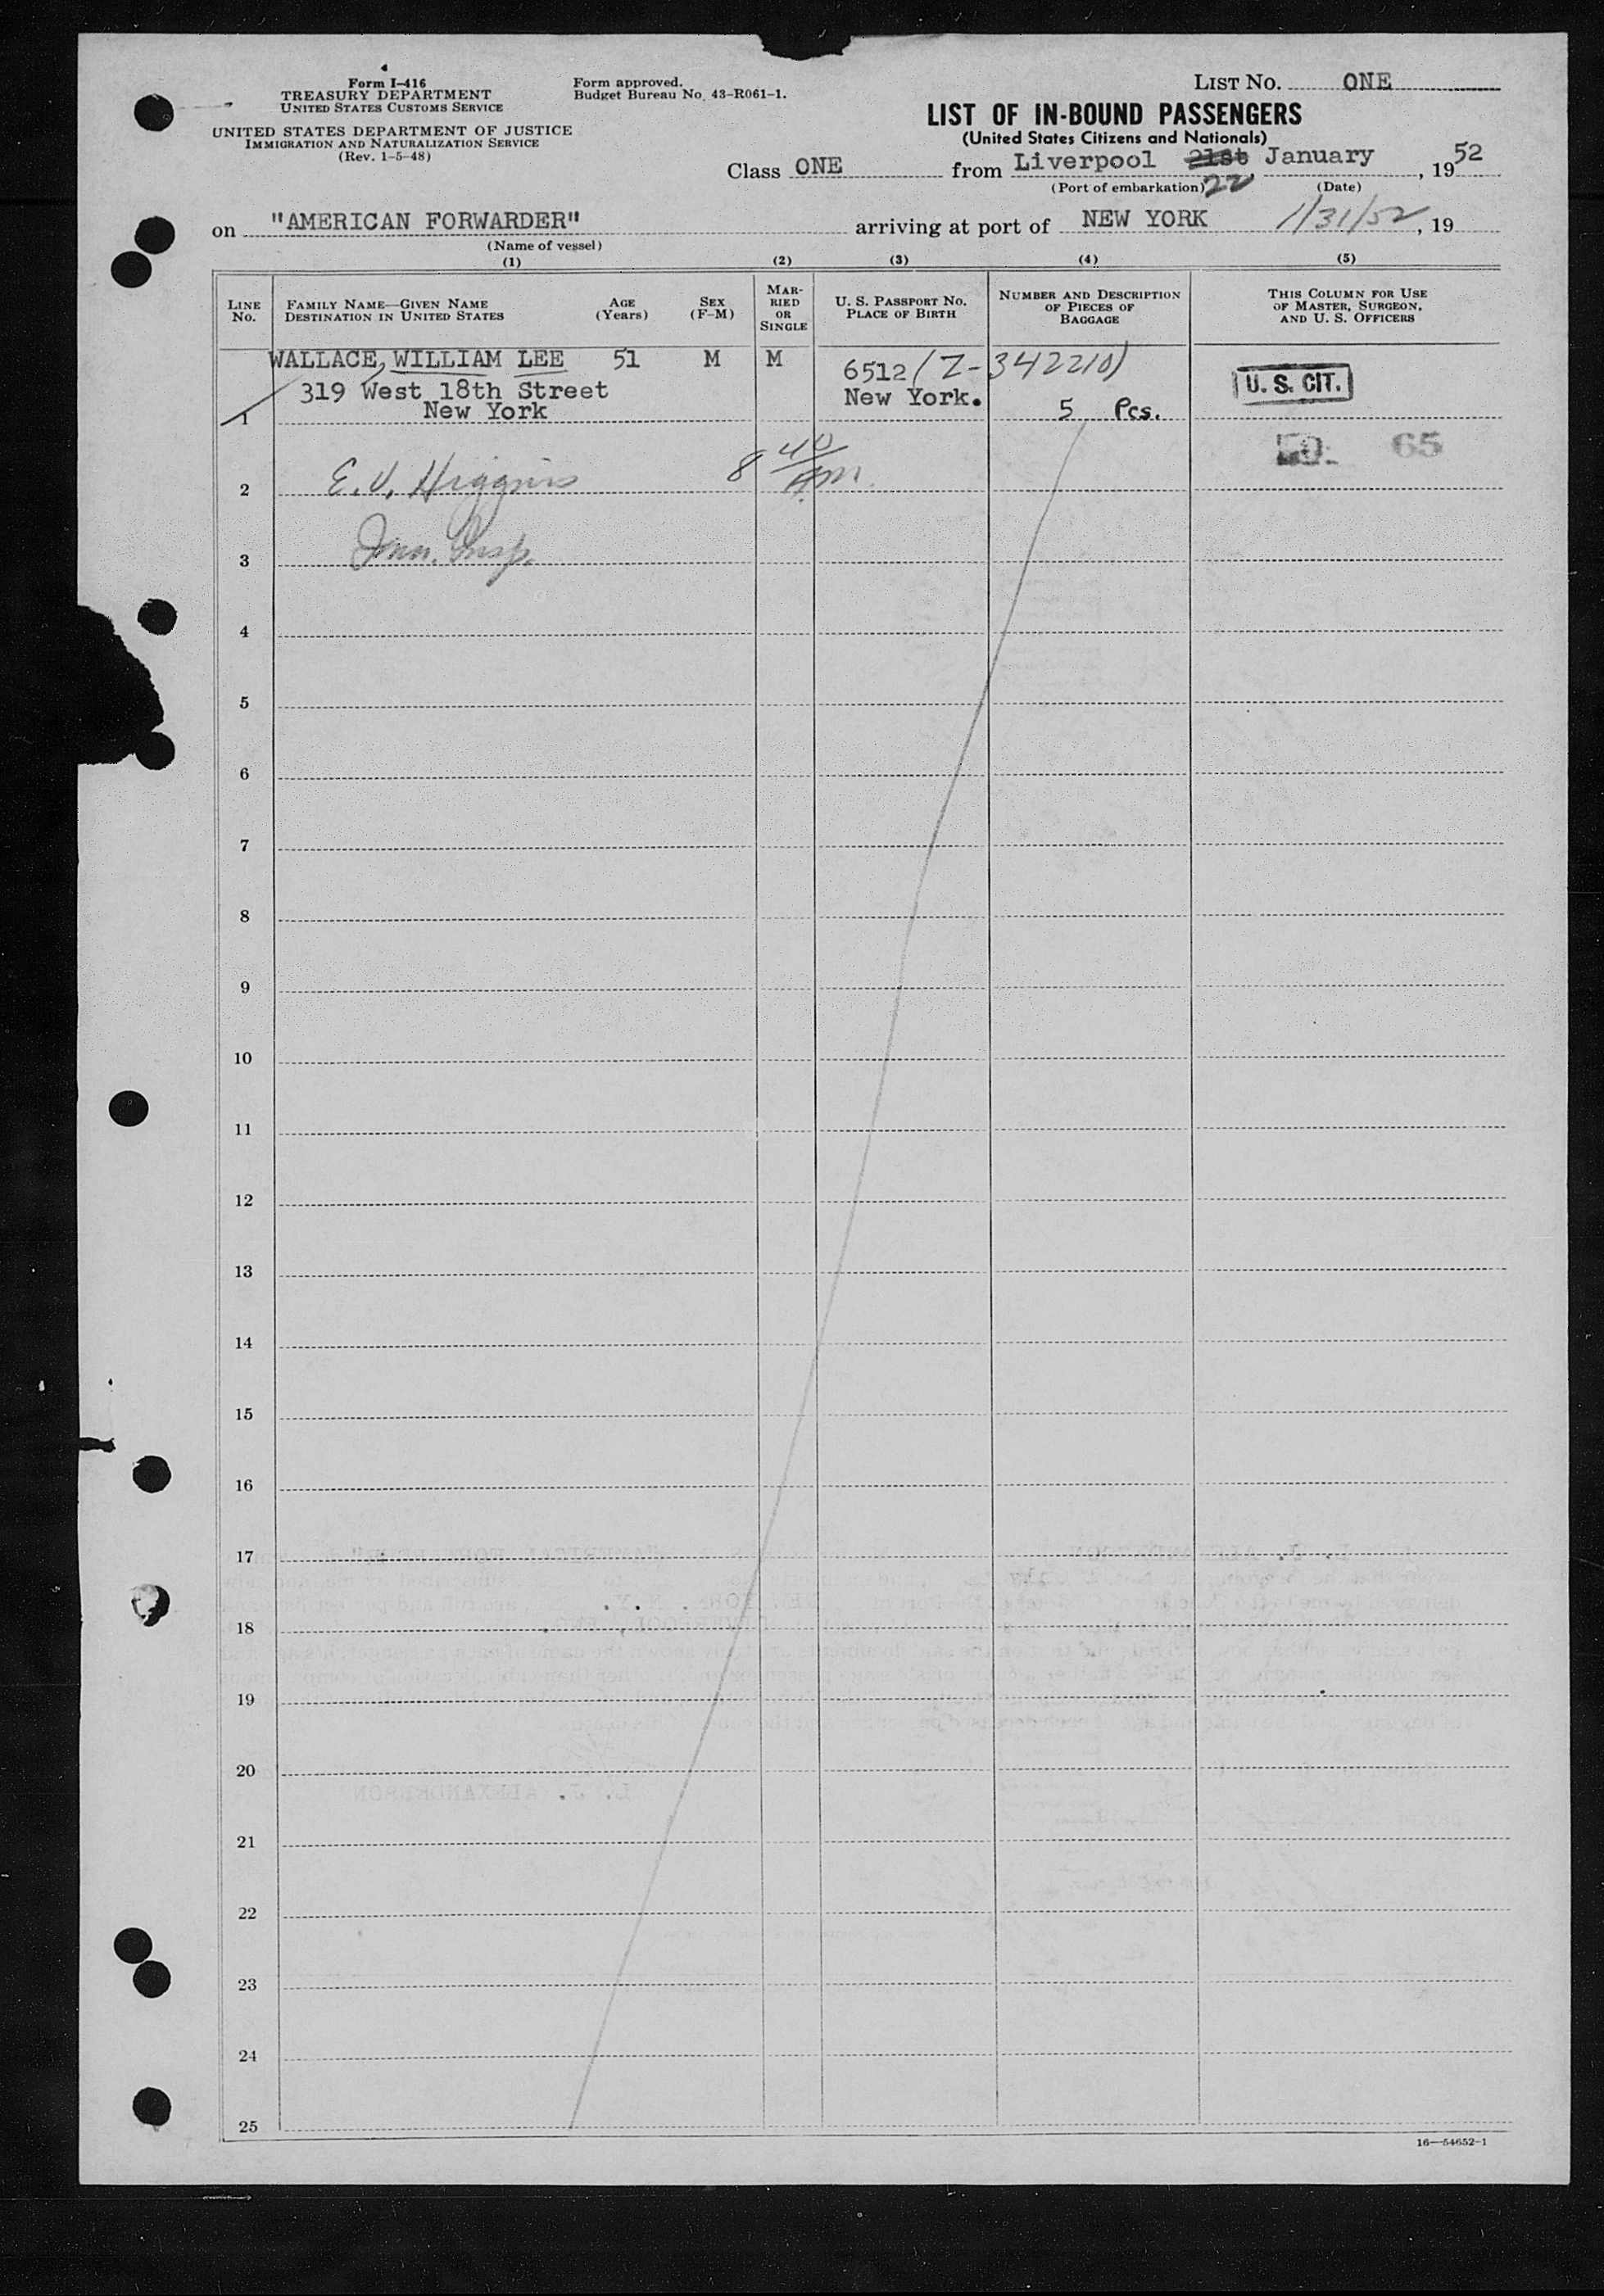 Form I-416
TREASURY DEPARTMENT
UNITED STATES CUSTOMS SERVICE
UNITED STATES DEPARTMENT OF JUSTICE
IMMIGRATION AND NATURALIZATION SERVICE
(Rev. 1-5-48)
Form approved.
Budget Bureau No. 43-R061-1.
LIST NO. ONE
LIST OF IN-BOUND PASSENGERS
(United States Citizens and Nationals)
Class ONE from Liverpool 21st January, 1952
(Port of embarkation) 22 (Date)
on "AMERICAN FORWARDER" arriving at port of NEW YORK 1/31/52, 19
(Name of vessel)
(1) (2) (3) (4) (5)
LINE NO.
FAMILY NAME—GIVEN NAME
DESTINATION IN UNITED STATES
AGE (Years)
SEX (F-M)
MARRIED OR SINGLE
U. S. PASSPORT NO.
PLACE OF BIRTH
NUMBER AND DESCRIPTION
OF PIECES OF
BAGGAGE
THIS COLUMN FOR USE
OF MASTER, SURGEON,
AND U. S. OFFICERS
WALLACE, WILLIAM LEE 51 M M 6512 (Z-342210)
319 West 18th Street New York. U. S. CIT.
New York
1 5 Pcs.
65
2 E. V. Higgins 8 40 AM
3 Imm. Insp.
4
5
6
7
8
9
10
11
12
13
14
15
16
17
18
19
20
21
22
23
24
25
16—54652-1